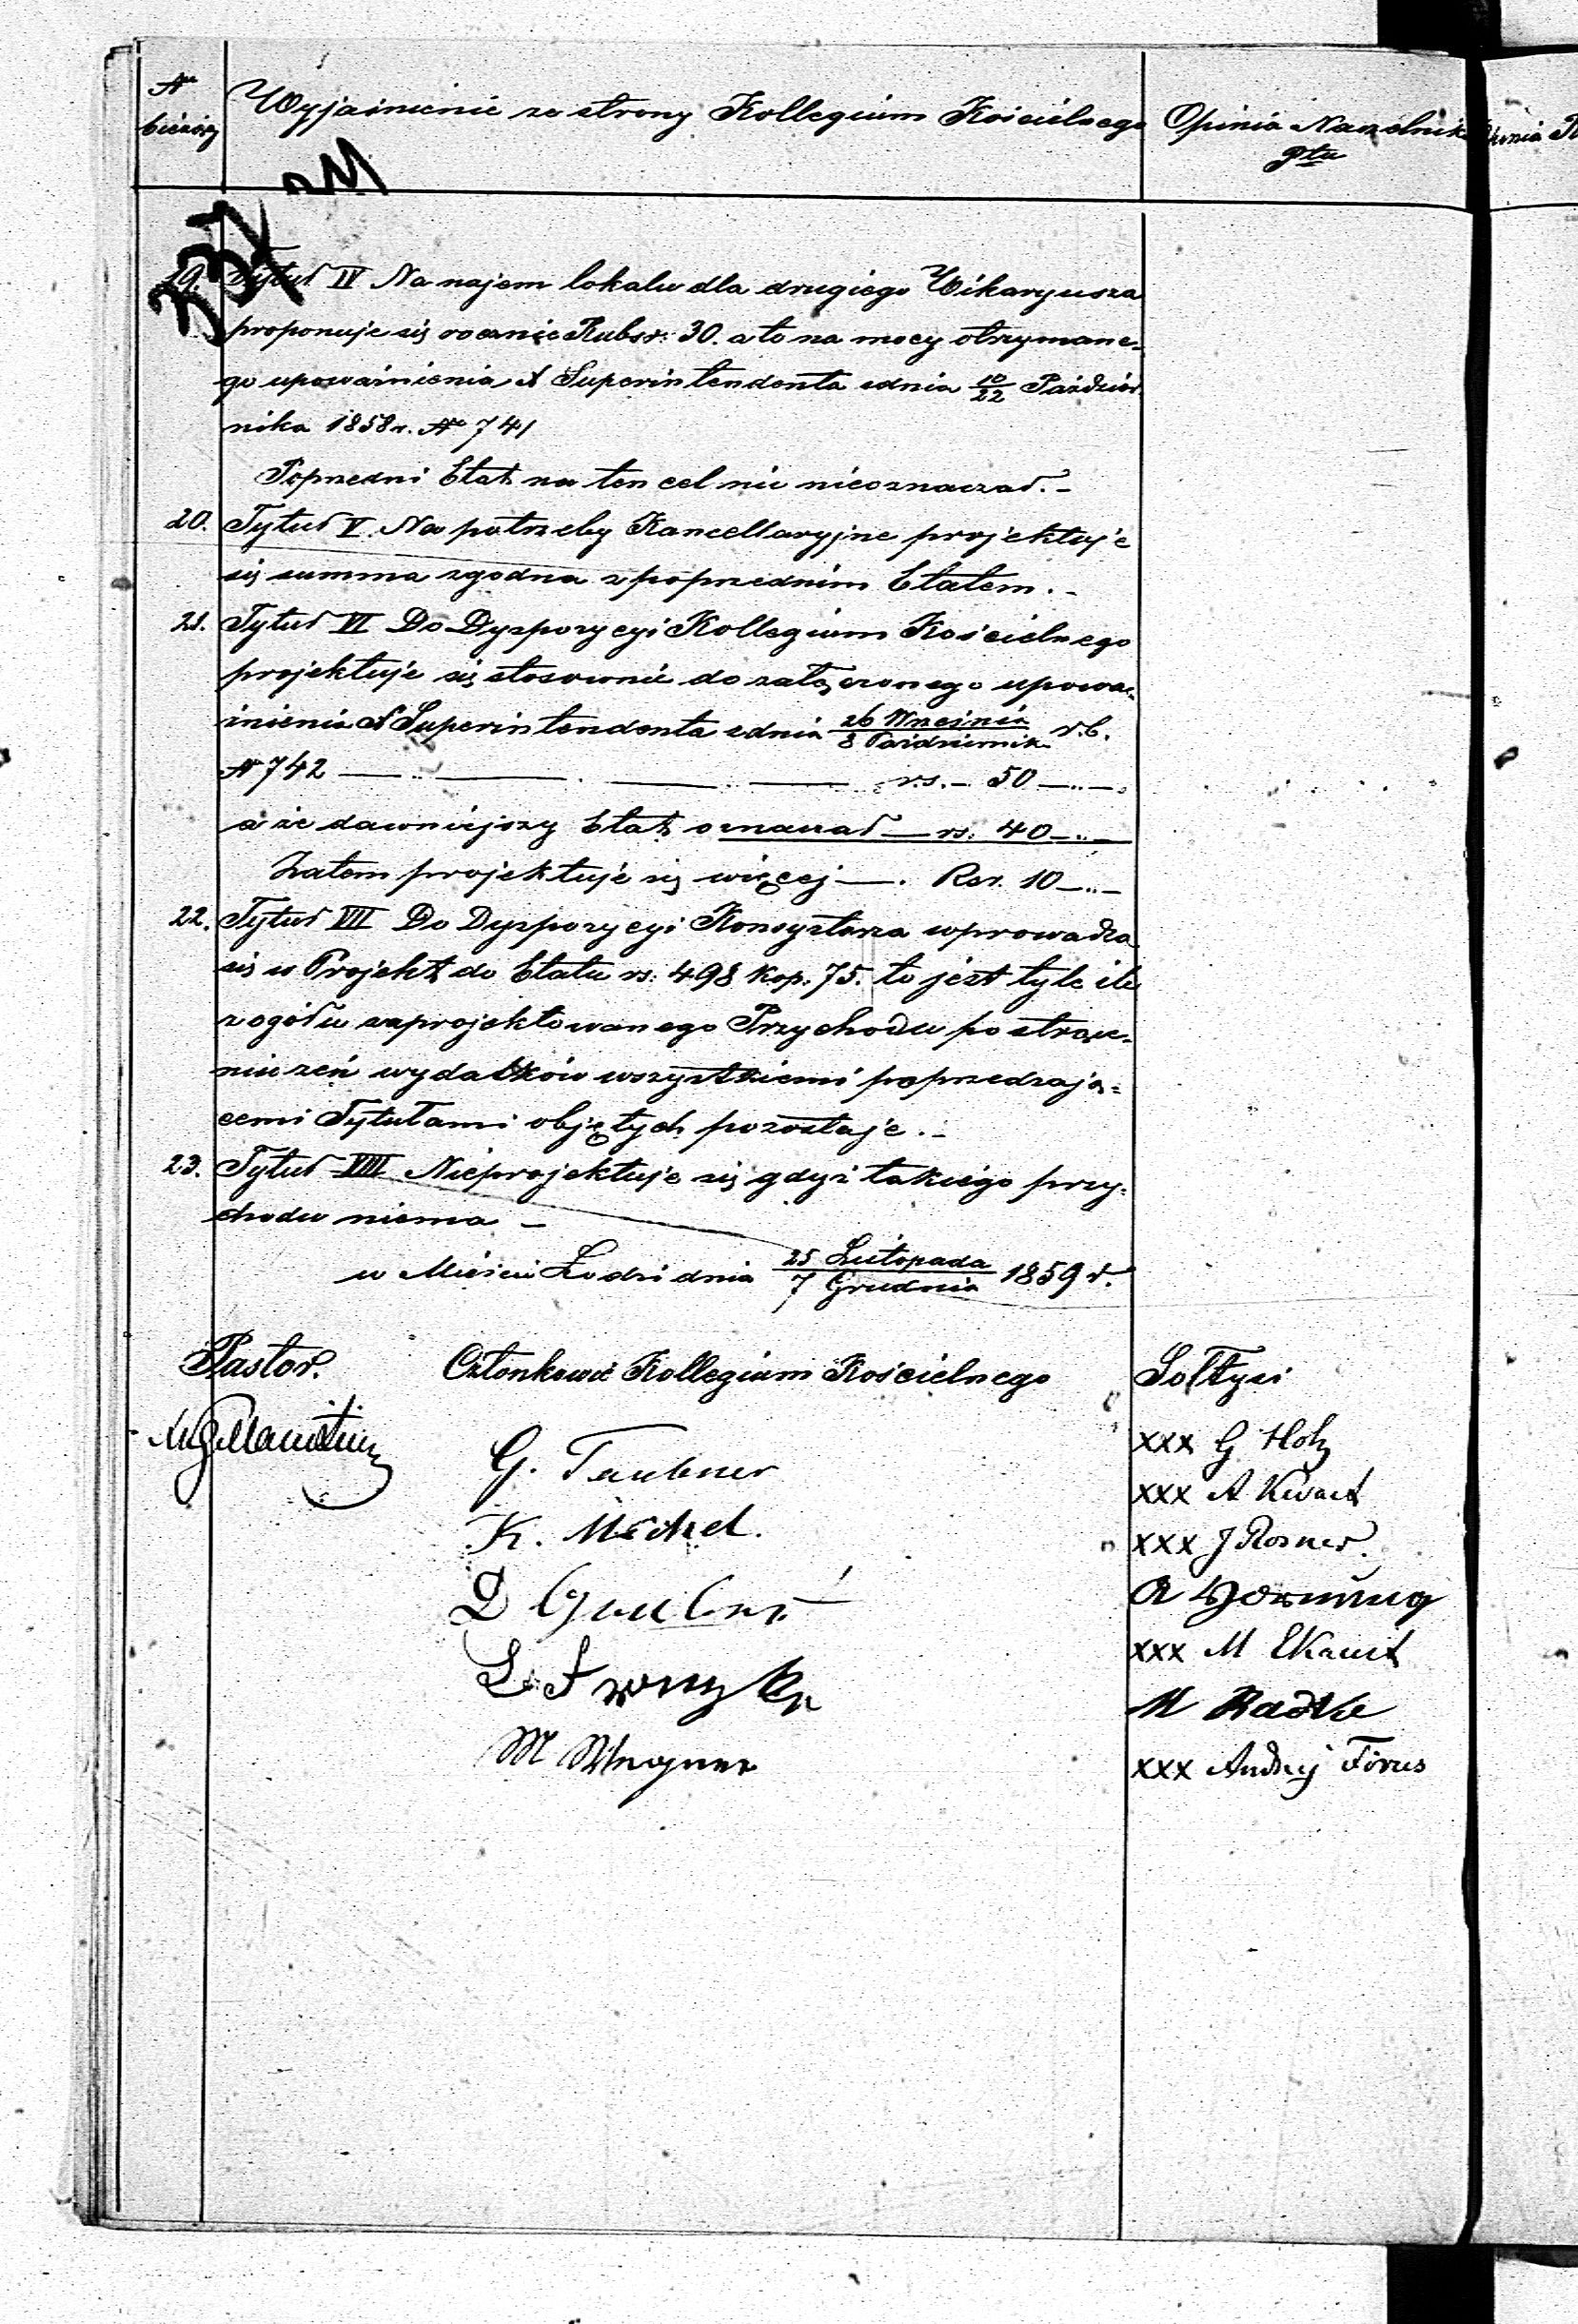 № bieżący
Wyjaśnienie ze strony Kollegium Kościelnego
Opinia Naczelnika Ptu
19. Tytuł IV Na najem lokalu dla drugiego Wikaryusza
proponuje się rocznie Rubsr: 30. a to na mocy otrzymane-
go upoważnienia Superintendenta z dnia 10/22 Paździer-
nika 1858 r. № 741
Poprzedni Etat na ten cel nic nieoznaczał. -
20. Tytuł V. Na potrzeby Kancellaryjne projektuje
się summa zgodna z poprzednim Etatem. -
21. Tytuł VI Do Dyspozycyi Kollegium Kościelnego
projektuje się stosownie do załączonego upowa-
żnienia Superintendenta z dnia 26 Września/8 Październik r. b.
№ 742 rs. 50
a że dawniejszy Etat oznaczał rs: 40
Zatem projektuje się więcej Rsr. 10
22. Tytuł VII Do Dyspozycyi Konsystorza wprowadza
się w Projekt do Etatu rs: 498 kop. 75. to jest tyle ile
z ogółu zaprojektowanego Przychodu po strące-
niu zeń wydatków wszystkiemi poprzedzają-
cemi Tytułami objętych pozostaje. -
23. Tytuł VIII Nieprojektuje się gdyż takiego przy-
chodu niema -
w Mieście Łodzi dnia 25 Listopada/7 Grudnia 1859 r.
Pastor.
Członkowie Kollegium Kościelnego
Sołtysi
G. Taubner
K. Michel.
M Wagner
xxx G Holz
xxx A Kwast
xxx J Rosner.
A Hornung
xxx M
M Radke
xxx Andrzej